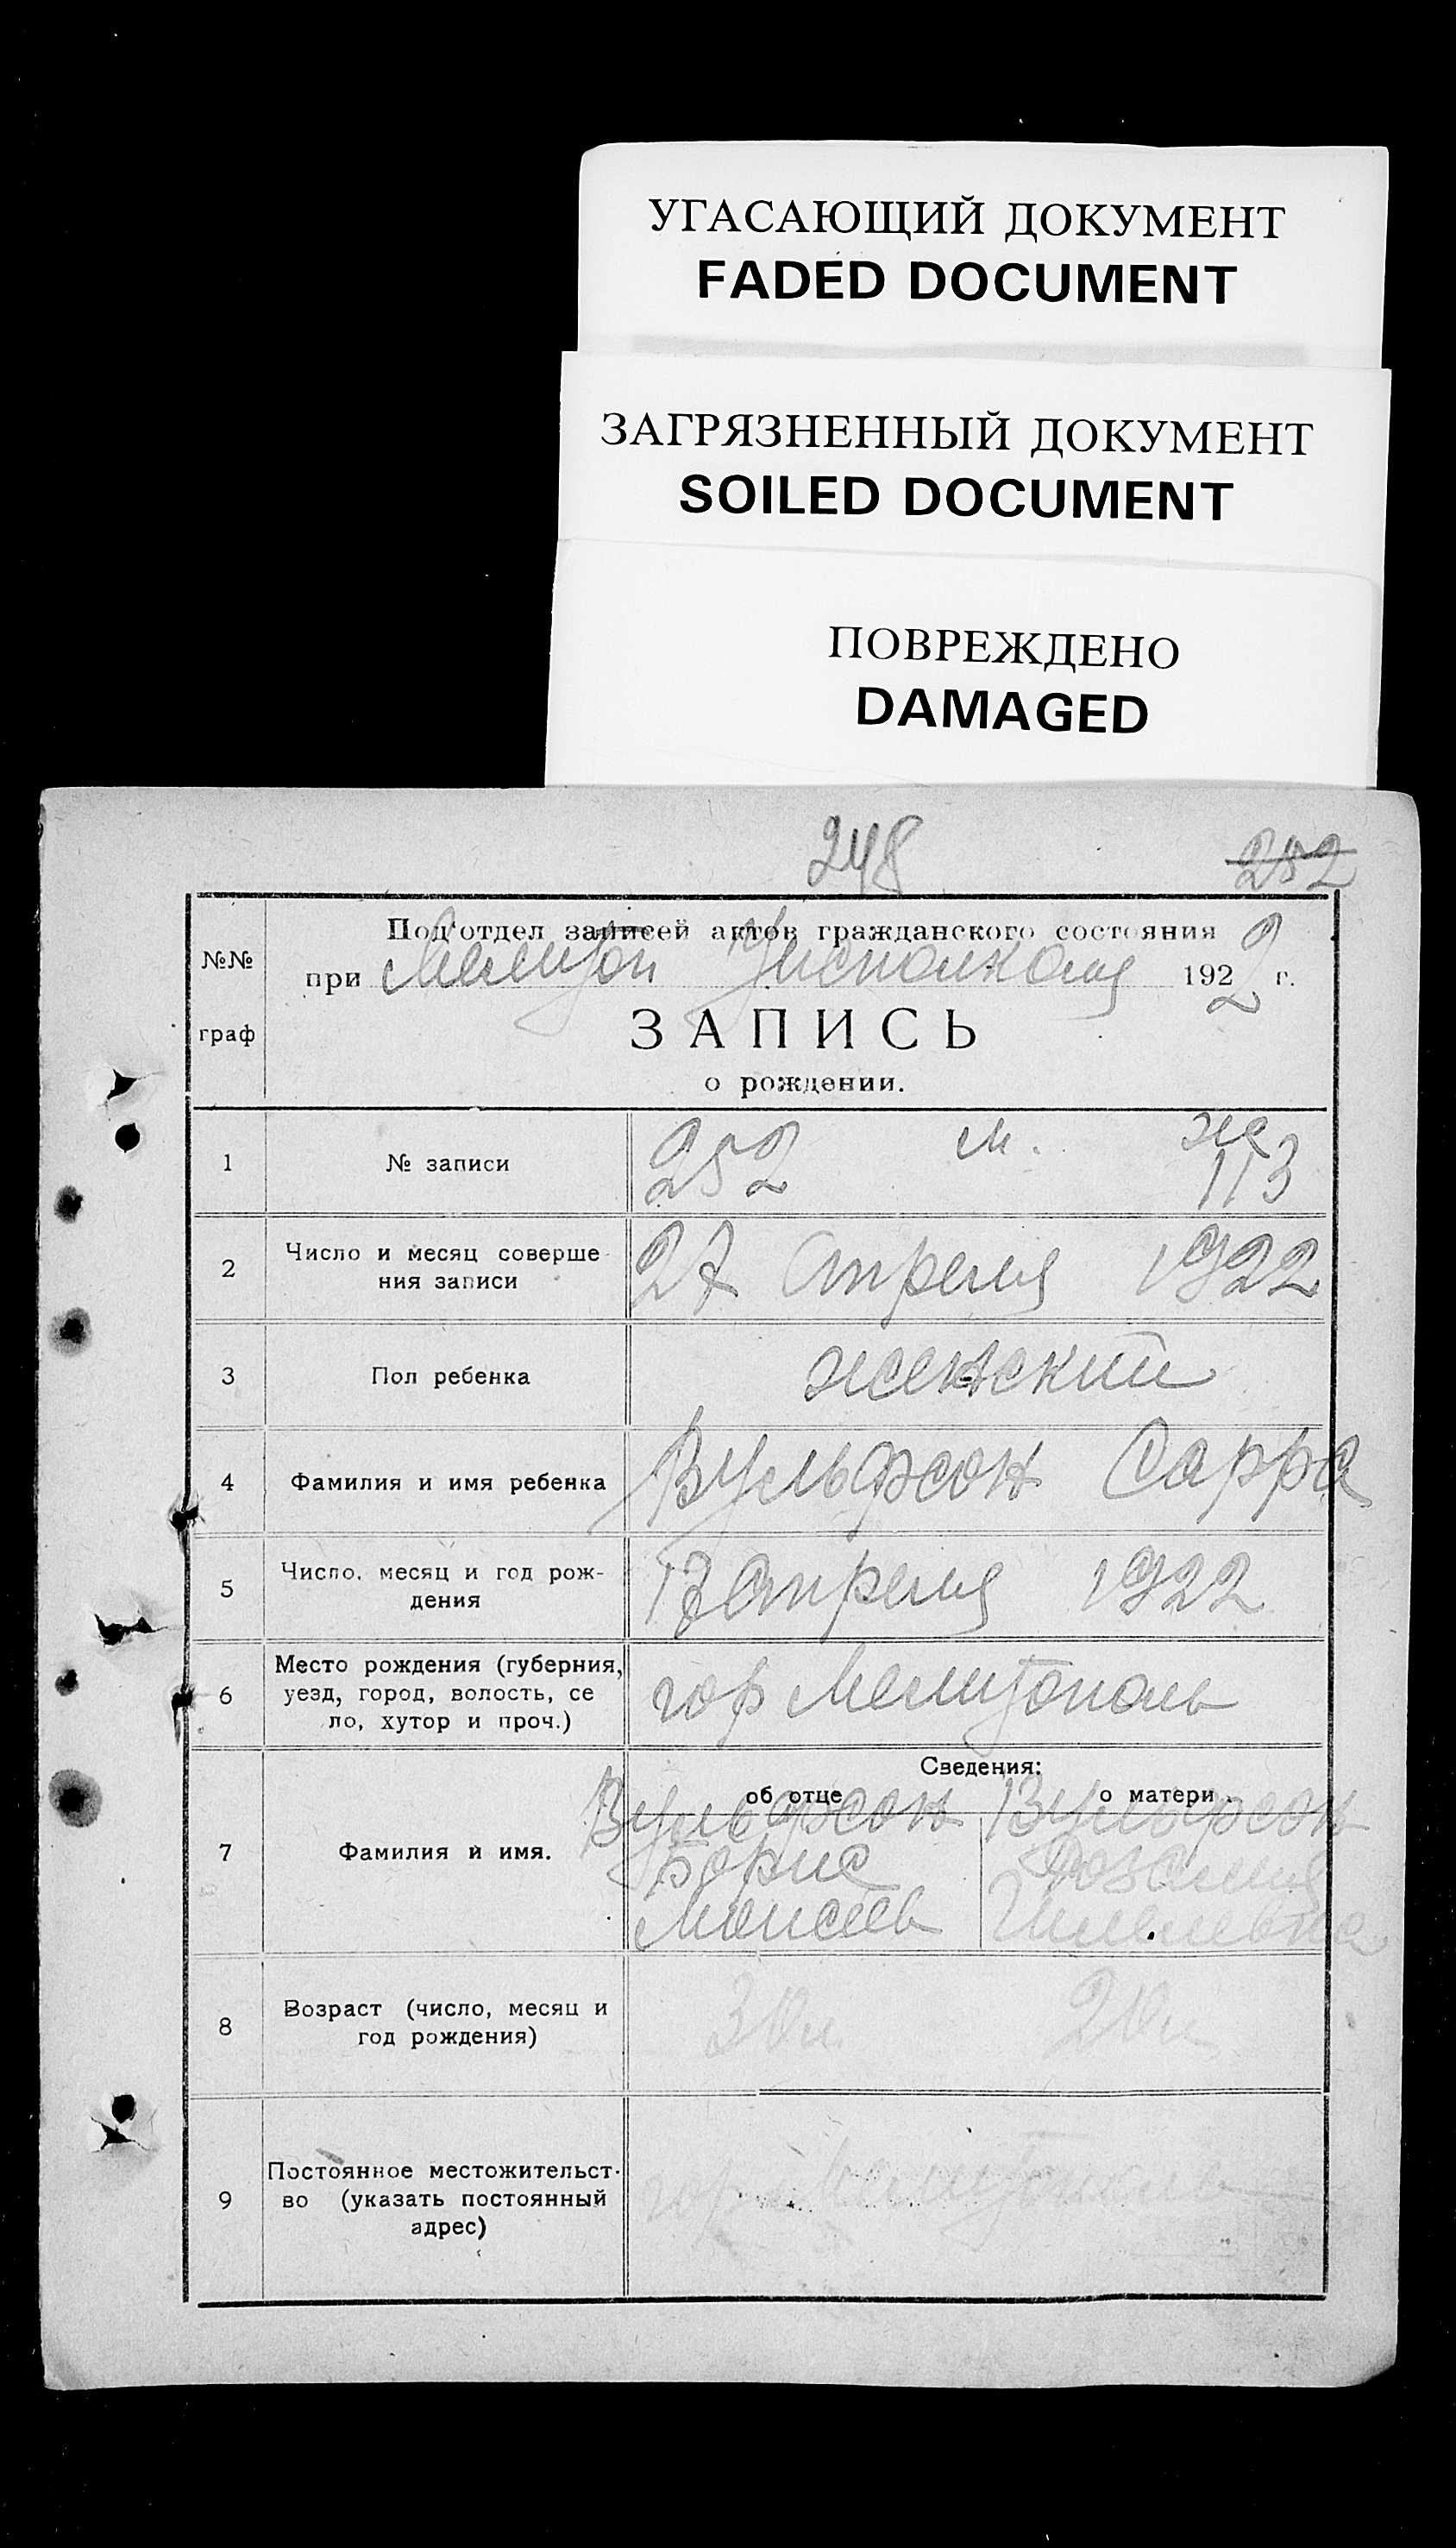 УГАСАЮЩИЙ ДОКУМЕНТ
FADED DOCUMENT
ЗАГРЯЗНЕННЫЙ ДОКУМЕНТ
SOILED DOCUMENT
ПОВРЕЖДЕНО
DAMAGED
248 252
Под'отдел записей актов гражданского состояния
№№ при Мелитоп Уисполкома 1922 г.
граф
ЗАПИСЬ
о рождении.
1 № записи 252 м. ж 113
2 Число и месяц соверше-
ния записи 27 Апреля 1922
3 Пол ребенка женский
4 Фамилия и имя ребенка Вульфсон Сарра
5 Число, месяц и год рож-
дения Апреля 1922
Место рождения (губерния,
6 уезд, город, волость, се
ло, хутор и проч.) гор Мелитополь
Сведения:
об отце о матери
7 Фамилия и имя.
Вульфсон Вульфсон
Борис Розалия
Моисеев
8 Возраст (число, месяц и
год рождения) 30 л 20 л
Постоянное местожительст-
9 во (указать постоянный
адрес) гор Мелитополь